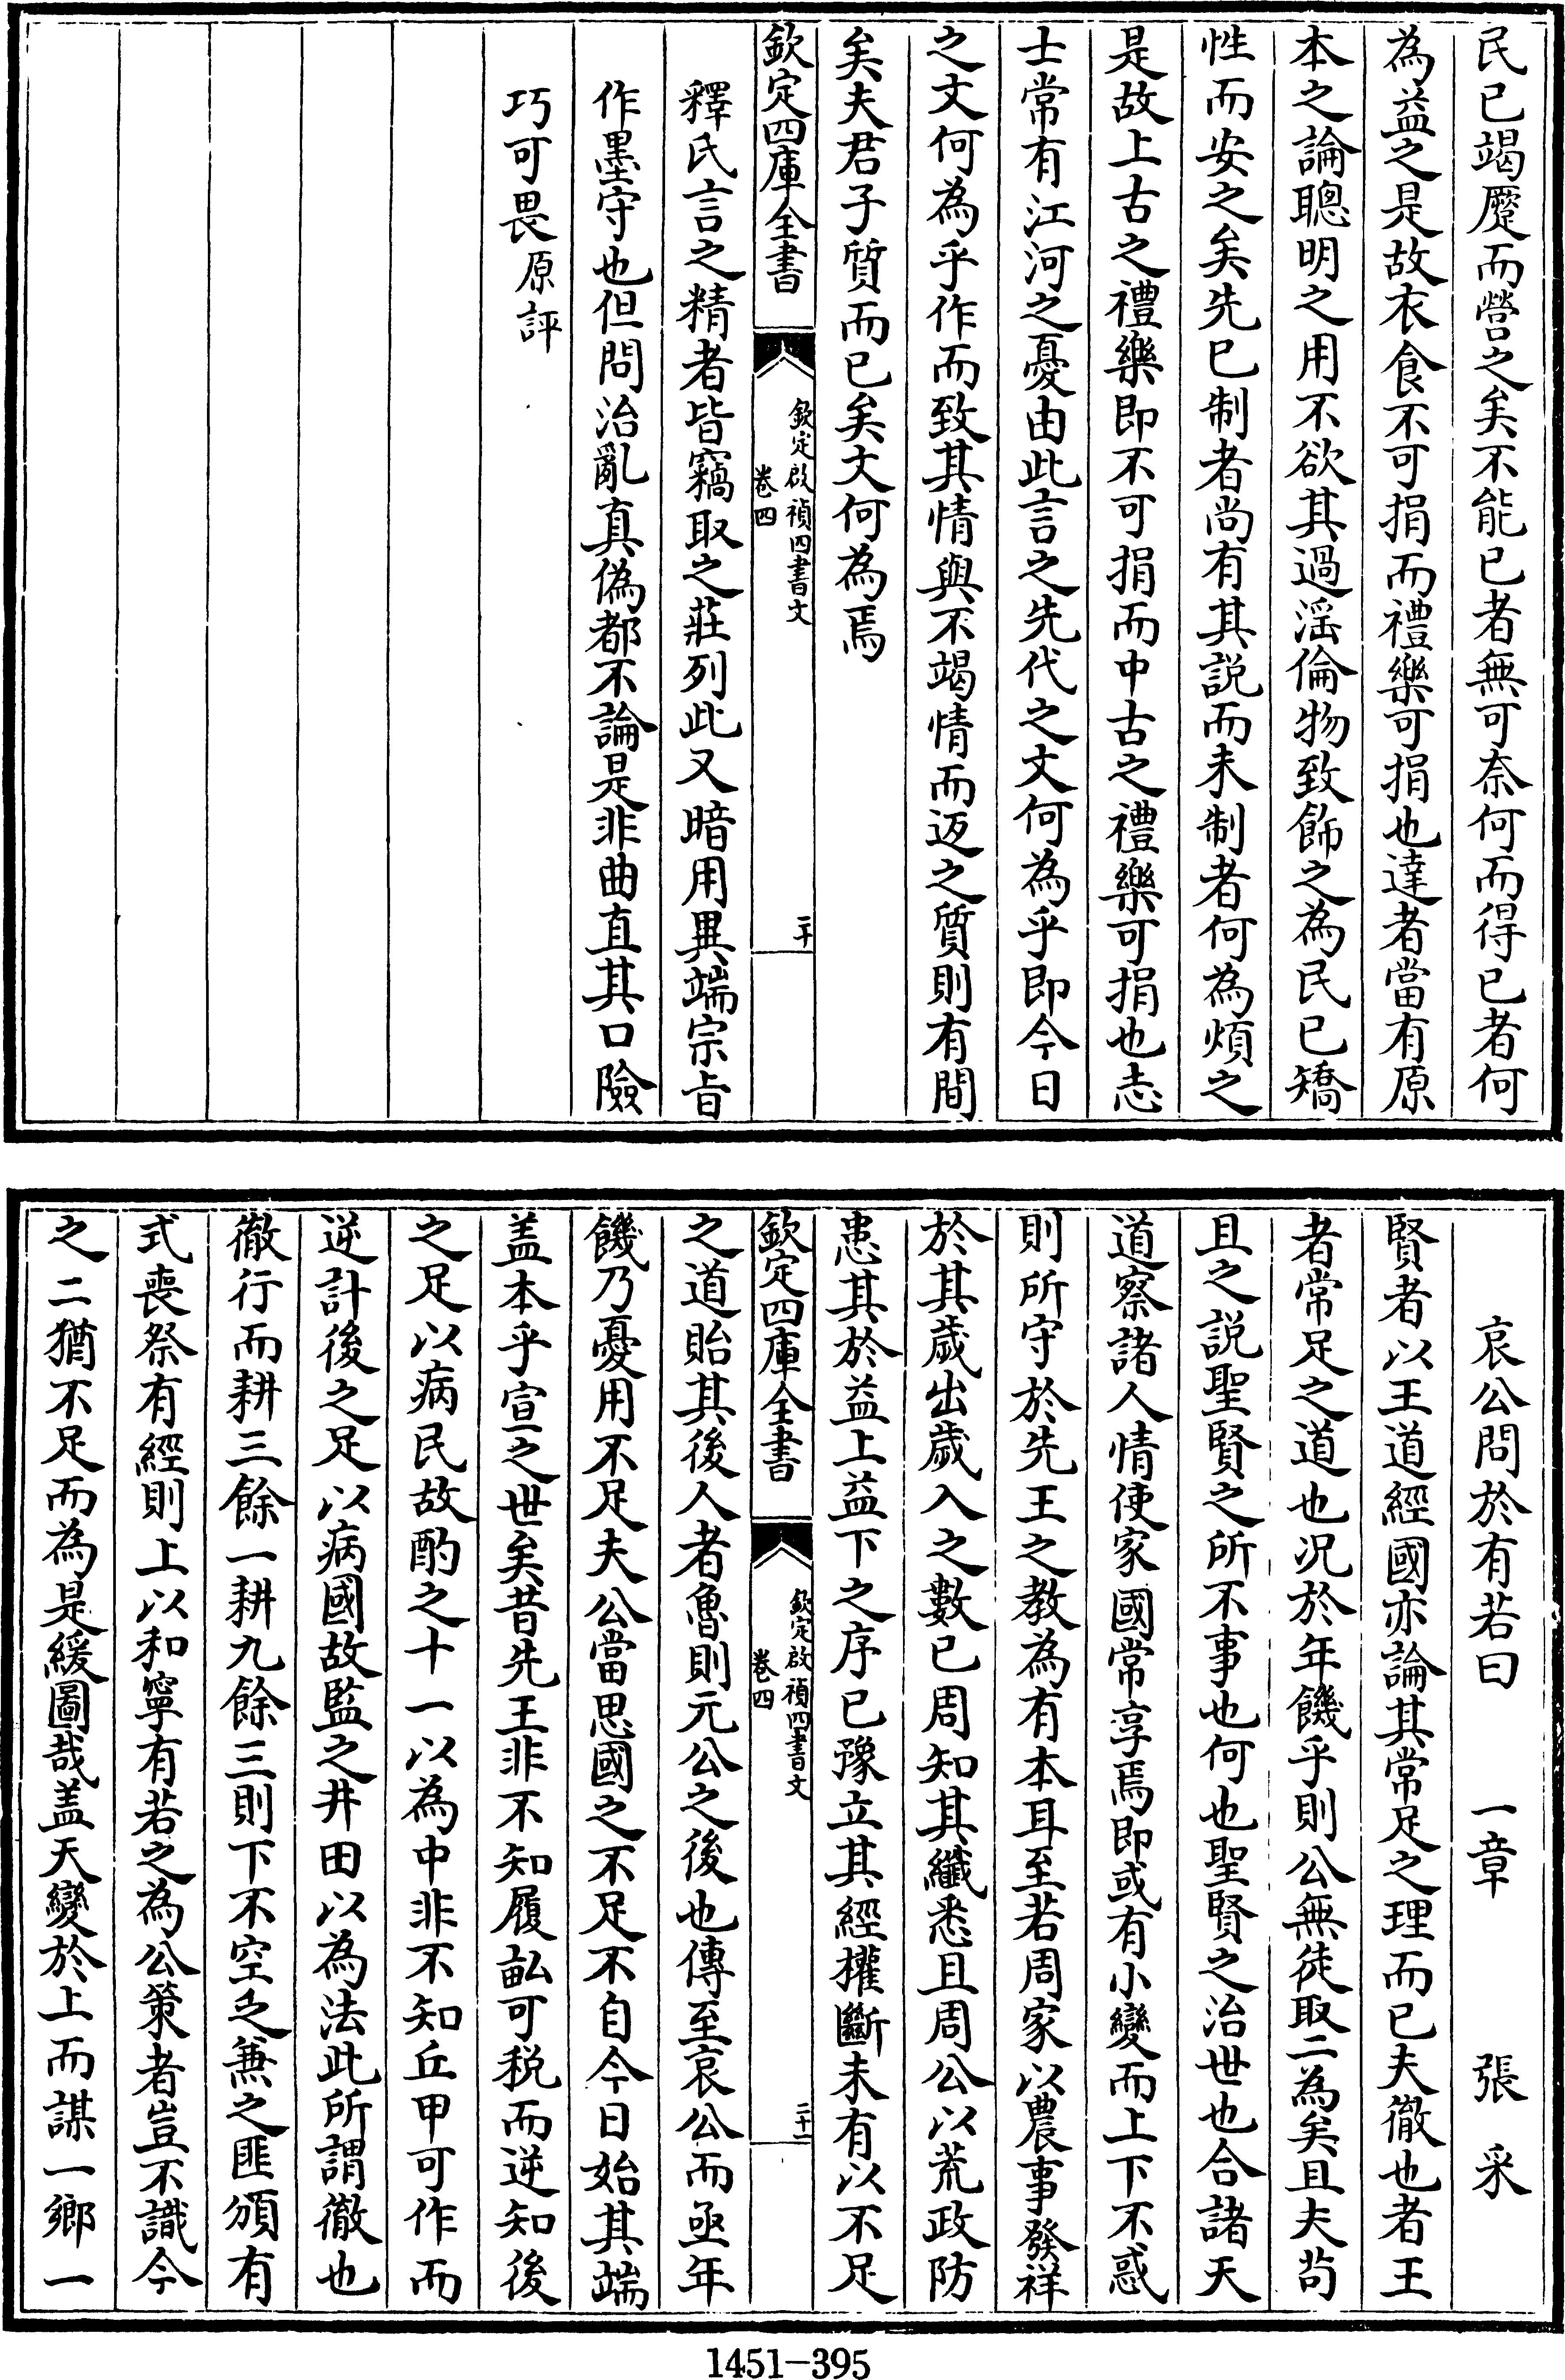 民已竭蹷而營之矣不能已者無可奈何而得已者何
為益之是故衣食不可捐而禮樂可捐也達者當有原
本之論聰明之用不欲其過滛倫物致飾之為民已矯
性而安之矣先已制者尚有其説而未制者何為煩之
是故上古之禮樂即不可捐而中古之禮樂可捐也志
士常有江河之憂由此言之先代之文何為乎即今日
之文何為乎作而致其情與不竭情而迈之質則有間
矣夫君子質而已矣文何為焉
欽定四庫全書
欽定啟禎四書文
卷四
二十
釋氏言之精者皆竊取之莊列此又暗用異端宗㫖
作墨守也但問治亂真偽都不論是非曲直其口險
巧可畏原評
哀公問於有若曰 一章 張 采
賢者以王道經國亦論其常足之理而已夫徹也者王
者常足之道也況於年饑乎則公無徒取二為矣且夫茍
且之説聖賢之所不事也何也聖賢之治世也合諸天
道察諸人情使家國常享焉即或有小變而上下不惑
則所守於先王之教為有本耳至若周家以農事發祥
於其歲出歲入之數已周知其纖悉且周公以荒政防
患其於益上益下之序已豫立其經權斷未有以不足
欽定四庫全書
欽定啟禎四書文
卷四
二十一
之道貽其後人者魯則元公之後也傳至哀公而亟年
饑乃憂用不足夫公當思國之不足不自今日始其端
盖本乎宣之世矣昔先王非不知履畝可税而逆知後
之足以病民故酌之十一以為中非不知丘甲可作而
逆計後之足以病國故監之井田以為法此所謂徹也
徹行而耕三餘一耕九餘三則下不空乏兼之匪頒有
式喪祭有經則上以和寧有若之為公策者豈不識今
之二猶不足而為是緩圖哉盖天變於上而謀一鄉一
1451-395